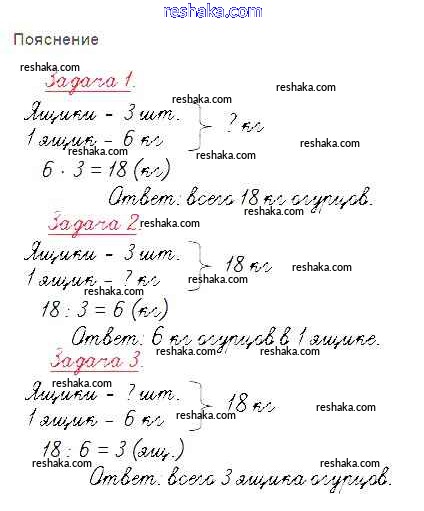 reshaka.com
Пояснение
reshaka.com
Задача 1.
reshaka.com
Ящики - 3 шт.
reshaka.com
? кг
1 ящик - 6 кг
reshaka.com
reshaka.com
reshaka.com
6 · 3 = 18 (кг)
Ответ: всего 18 кг огурцов.
reshaka.com
Задача 2.
reshaka.com
Ящики - 3 шт.
reshaka.com
18 кг
reshaka.com
1 ящик - ? кг
reshaka.com
18 : 3 = 6 (кг)
reshaka.com
Ответ: 6 кг огурцов в 1 ящике.
reshaka.com
reshaka.com
Задача 3.
reshaka.com
Ящики - ? шт.
18 кг
reshaka.com
reshaka.com
1 ящик - 6 кг
18 : 6 = 3 (ящ.)
reshaka.com
reshaka.com
reshaka.com
Ответ: всего 3 ящика огурцов.
reshaka.com